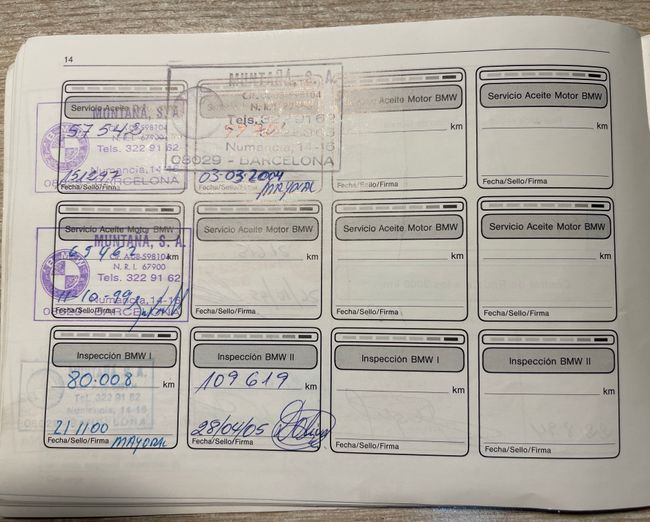 14
Servicio Aceite
MUNTANA, S. A.
57543
N. R. I. 67900
Tels. 322 91 62
Numancia, 14-16
15/12/97
BARCELONA
Fecha/Sello/Firma
MUNTAÑA, S. A.
N. R. I.
Tels. 322 91 62
Numancia, 14-16
08029 - BARCELONA
03-03-2004
Fecha/Sello/Firma
MAYORAL
Aceite Motor BMW
km
Fecha/Sello/Firma
Servicio Aceite Motor BMW
km
Fecha/Sello/Firma
Servicio Aceite Motor BMW
MUNTANA, S. A.
65462
km
N. R. I. 67900
Tels. 322 91 62
Numancia, 14-16
11-10-99
BARCELONA
Servicio Aceite Motor BMW
km
Fecha/Sello/Firma
Servicio Aceite Motor BMW
km
Fecha/Sello/Firma
Servicio Aceite Motor BMW
km
Fecha/Sello/Firma
Inspección BMW I
80.008
km
Tel. 322 91 62
Numancia, 14-16
21-11-00
Fecha/Sello/Firma
MAYORAL
Inspección BMW II
109619
km
28/04/05
Fecha/Sello/Firma
Inspección BMW I
km
Fecha/Sello/Firma
Inspección BMW II
km
Fecha/Sello/Firma